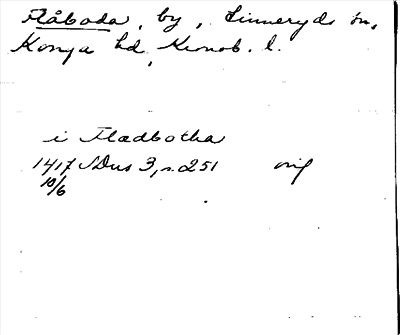 Flåboda, by, Linneryds sn,
Konga hd, Kronob. l.
i Fladbotha
1417 SDns 3, s. 251 orig
10/6